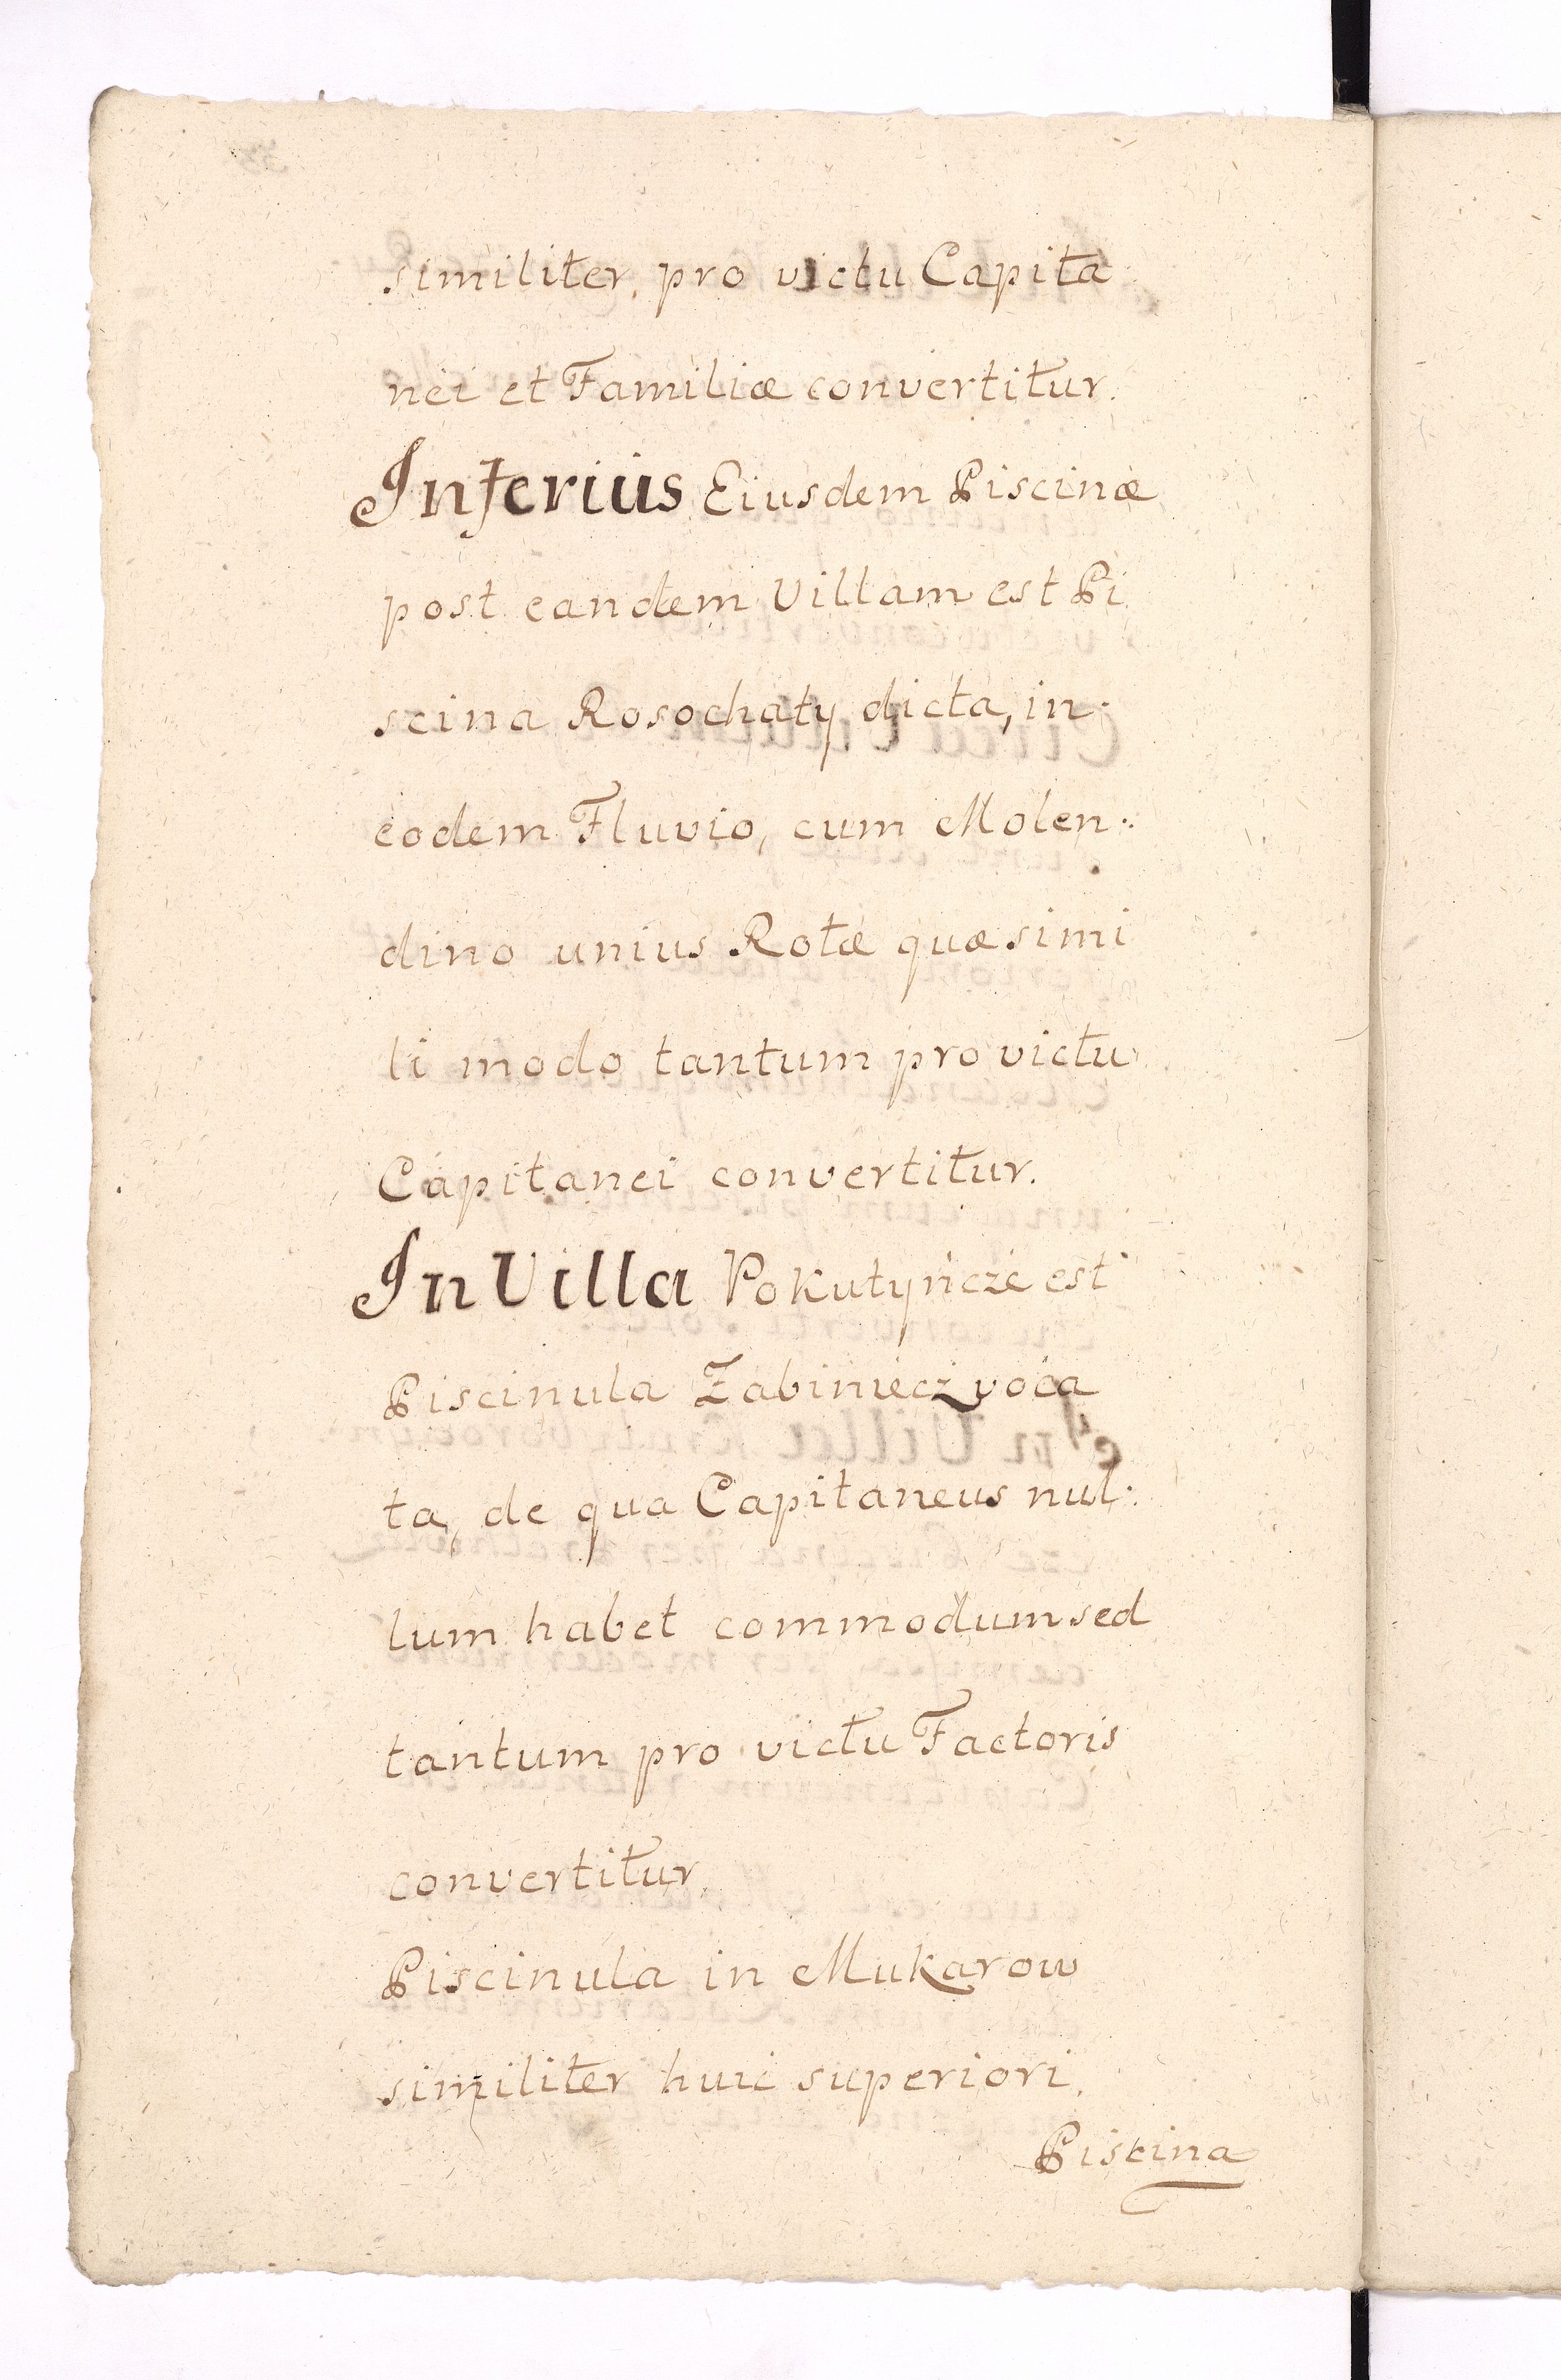 similiter, pro victu Capita
nei et Familiæ convertitur.
Inferius Eiusdem Piscinæ
post eandem Villam est Pi
scina Rosochaty dicta, in
eodem Fluvio, cum Molen:
dino unius Rotæ quæ simi
li modo tantum pro victu
Capitanei convertitur.
In Villa Pokutyńcze est
Piscinula Zabiniecz voca
ta, de qua Capitaneus nul:
lum habet commodum sed
tantum pro victu Factoris
convertitur.
Piscinula in Mukarow
similiter huic superiori.
Piscina